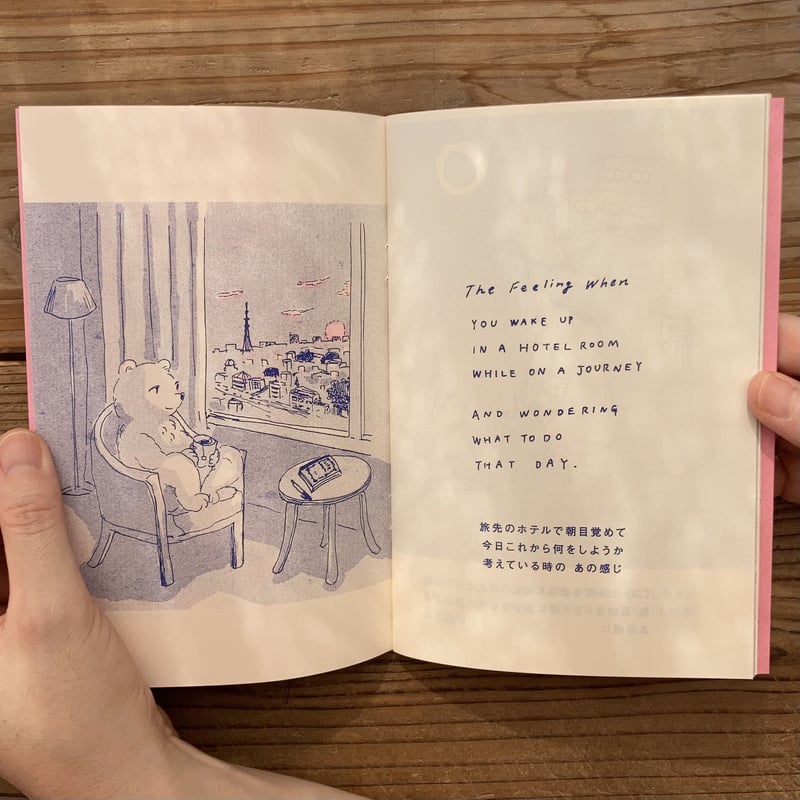 The Feeling When
YOU WAKE UP
IN A HOTEL ROOM
WHILE ON A JOURNEY
AND WONDERING
WHAT TO DO
THAT DAY.
旅先のホテルで朝目覚めて
今日これから何をしようか
考えている時の あの感じ